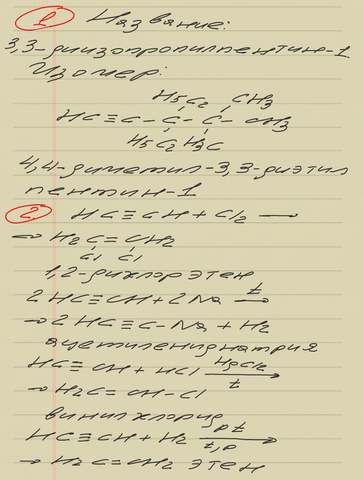 1 Название:
3,3-диизопропилпентин-1
Изомер:
H5C2 CH3
HC≡C-C-C-CH3
H5C2 H3C
4,4-диметил-3,3-диэтил
пентин-1
2 HC≡CH+Cl2 →
→ H2C=CH2
Cl Cl
1,2-дихлорэтен
2HC≡CH+2Na t→
→ 2HC≡C-Na+H2
ацетиленид натрия
HC≡CH+HCl HgCl2 t→
→ H2C=CH-Cl
винилхлорид
HC≡CH+H2 pt t,p→
→ H2C=CH2 этен